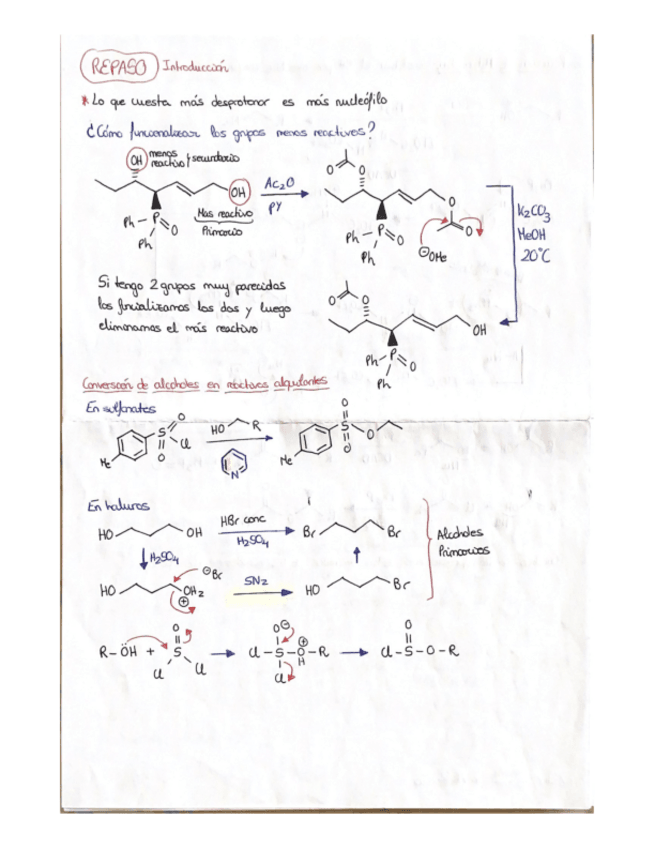 REPASO Introducción
* Lo que cuesta más desprotonar es más nucleófilo
¿Cómo funcionalizar los grupos menos reactivos?
OH menos reactivo y secundario
OH
Mas reactivo
Primario
Ph-P=O
Ph
Ac2O
PY
O
O
O
O
Ph-P=O
Ph
⊖OMe
K2CO3
MeOH
20°C
Si tengo 2 grupos muy parecidos
los funcializamos los dos y luego
eliminamos el más reactivo
O
O
OH
Ph-P=O
Ph
Conversión de alcoholes en reactivos alquilantes
En sulfonatos
Me
S
O
O
Cl
HO R
N
Me
O
S
O
O
En haluros
HO OH
HBr conc
H2SO4
Br Br
Alcoholes
Primarios
H2SO4
HO OH2
⊕
⊖Br
SN2
HO Br
R-ÖH +
O
S
Cl Cl
O⊖
Cl-S-O-R
⊕
H
Cl
O
Cl-S-O-R